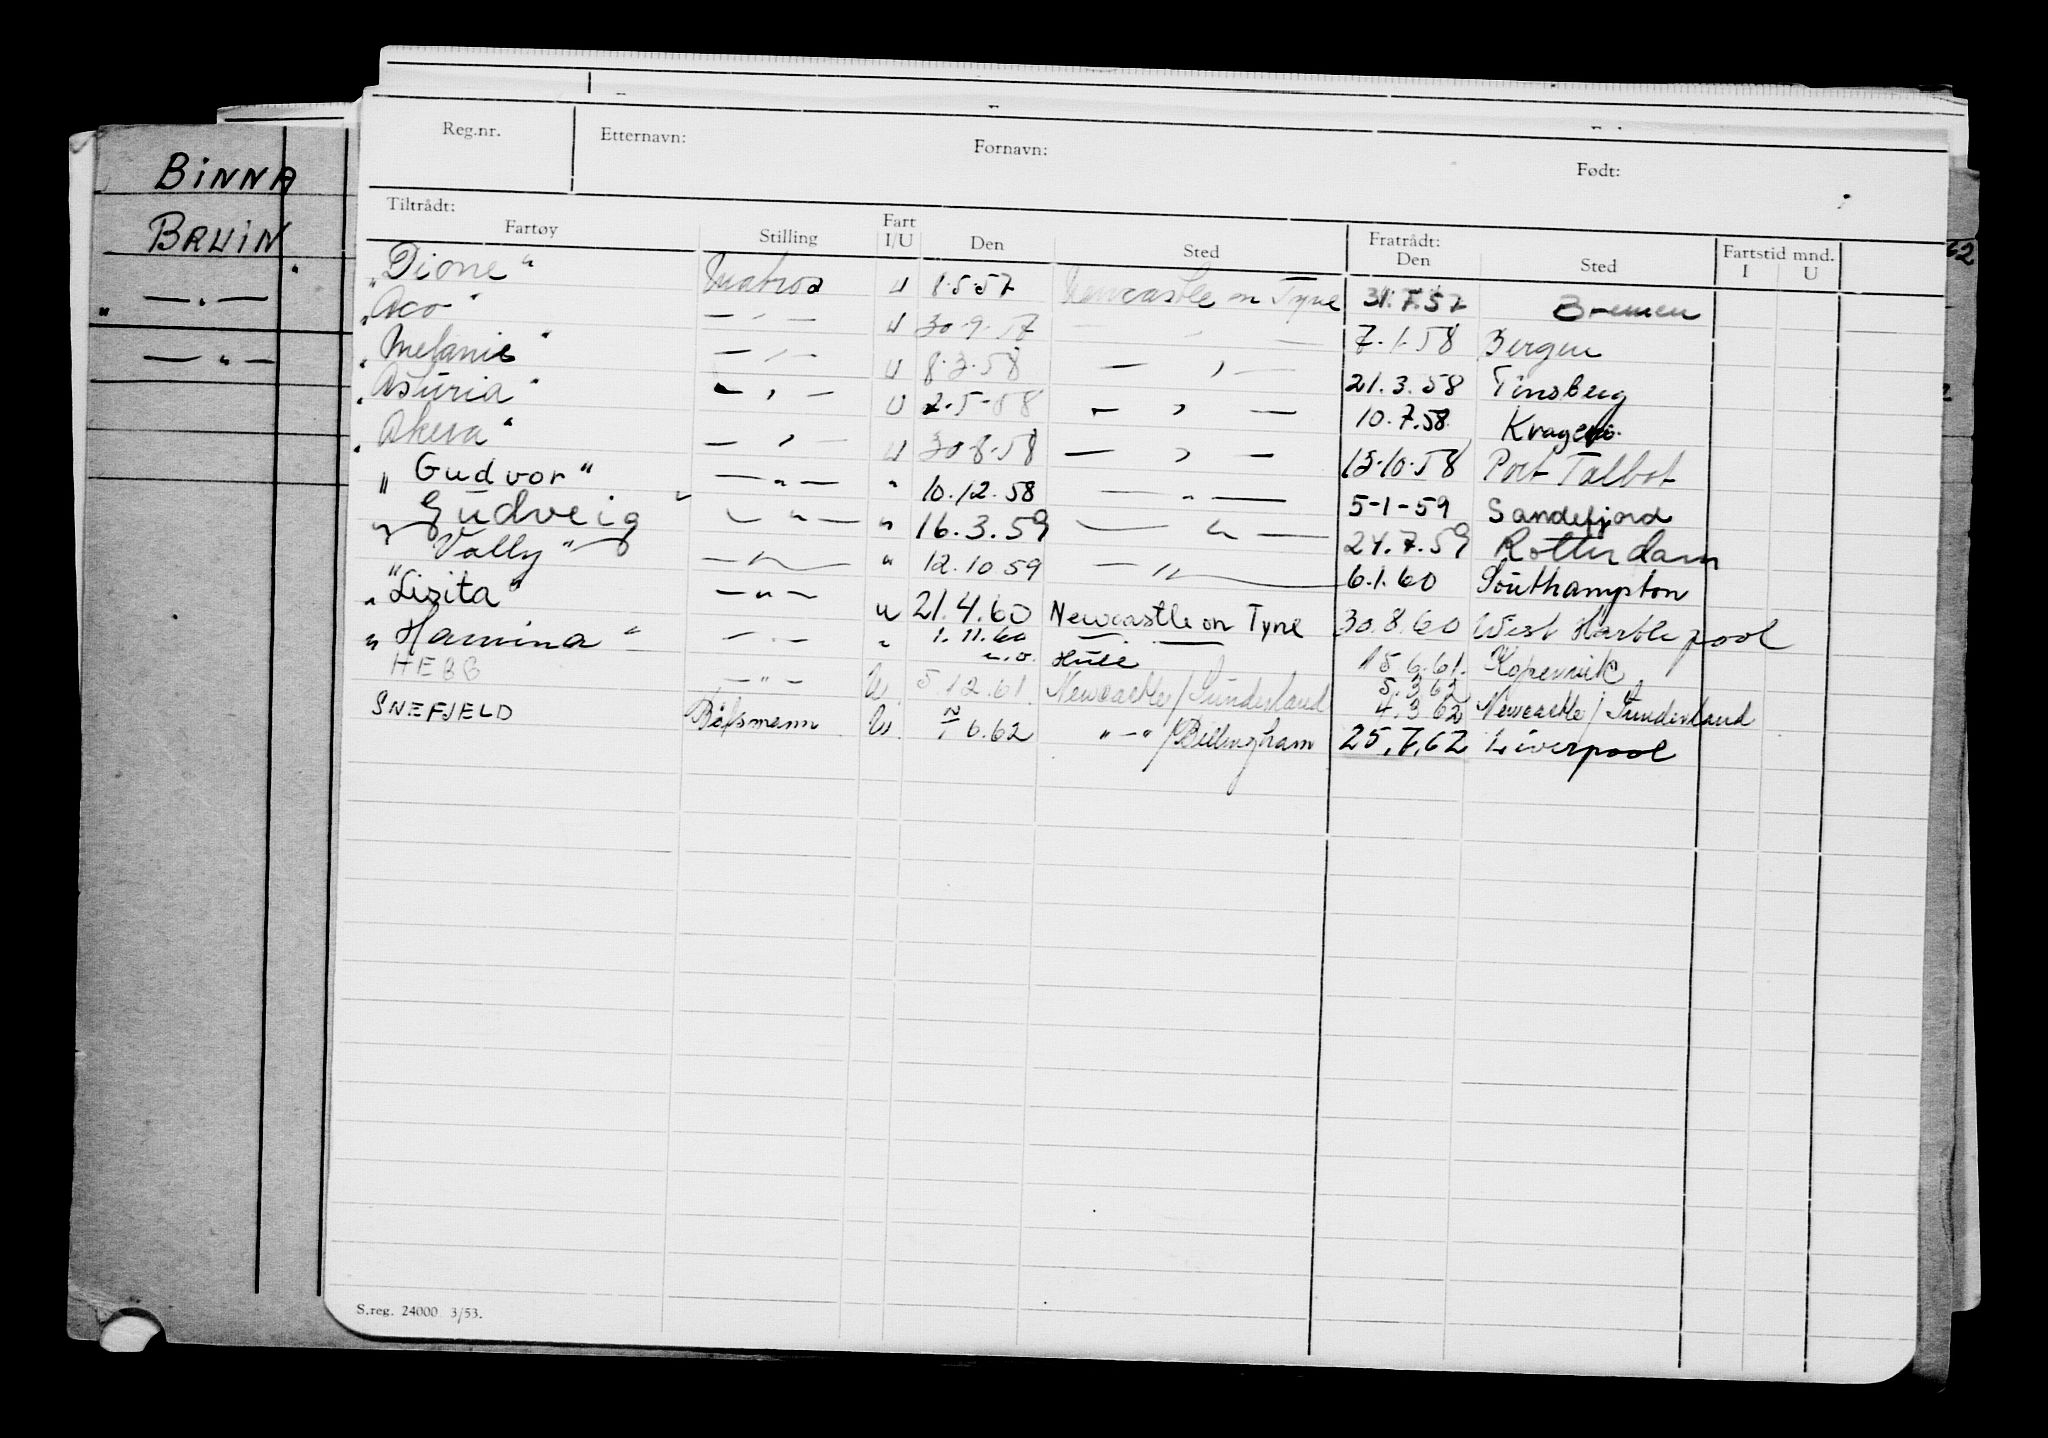 BINNA
BRUIN
— " —
" — " —
Reg.nr. Etternavn: Fornavn: Født:
Tiltrådt: Fratrådt: Fartstid mnd.
Fartøy Stilling Fart I/U Den Sted Den Sted I U
"Dione" Matros U 8.5.57 Newcastle on Tyne 31.7.57 Bremen
"Aco" — " — U 30-9-57 — " — 7.1.58 Bergen
"Melanie" — " — U 8.3.58 — " — 21.3.58 Tønsberg
"Asturia" — " — U 2-5-58 — " — 10.7.58 Kragerø
"Akera" — " — U 30-8-58 — " — 15-10-58 Port Talbot
"Gudvor" — " — " 10.12.58 — " — 5-1-59 Sandefjord
"Gudveig" — " — " 16.3.59 — " — 24.7.59 Rotterdam
"Vally" — " — " 12.10 59 — " — 6.1.60 Southampton
"Lisita" — " — u 21.4.60 Newcastle on Tyne 30.8.60 West Hartlepool
"Hamina" — " — " 1.11.60 — —
Hull 15.6.61. Kopervik
HEBB — " — U 5.12.61 Newcastle/Sunderland 5.3 62
4.3 62 Newcastle/Sunderland
SNEFJELD Båtsmann U 6.62 " — " /Billingham 25.7.62 Liverpool
62
S.reg. 24000 3/53.